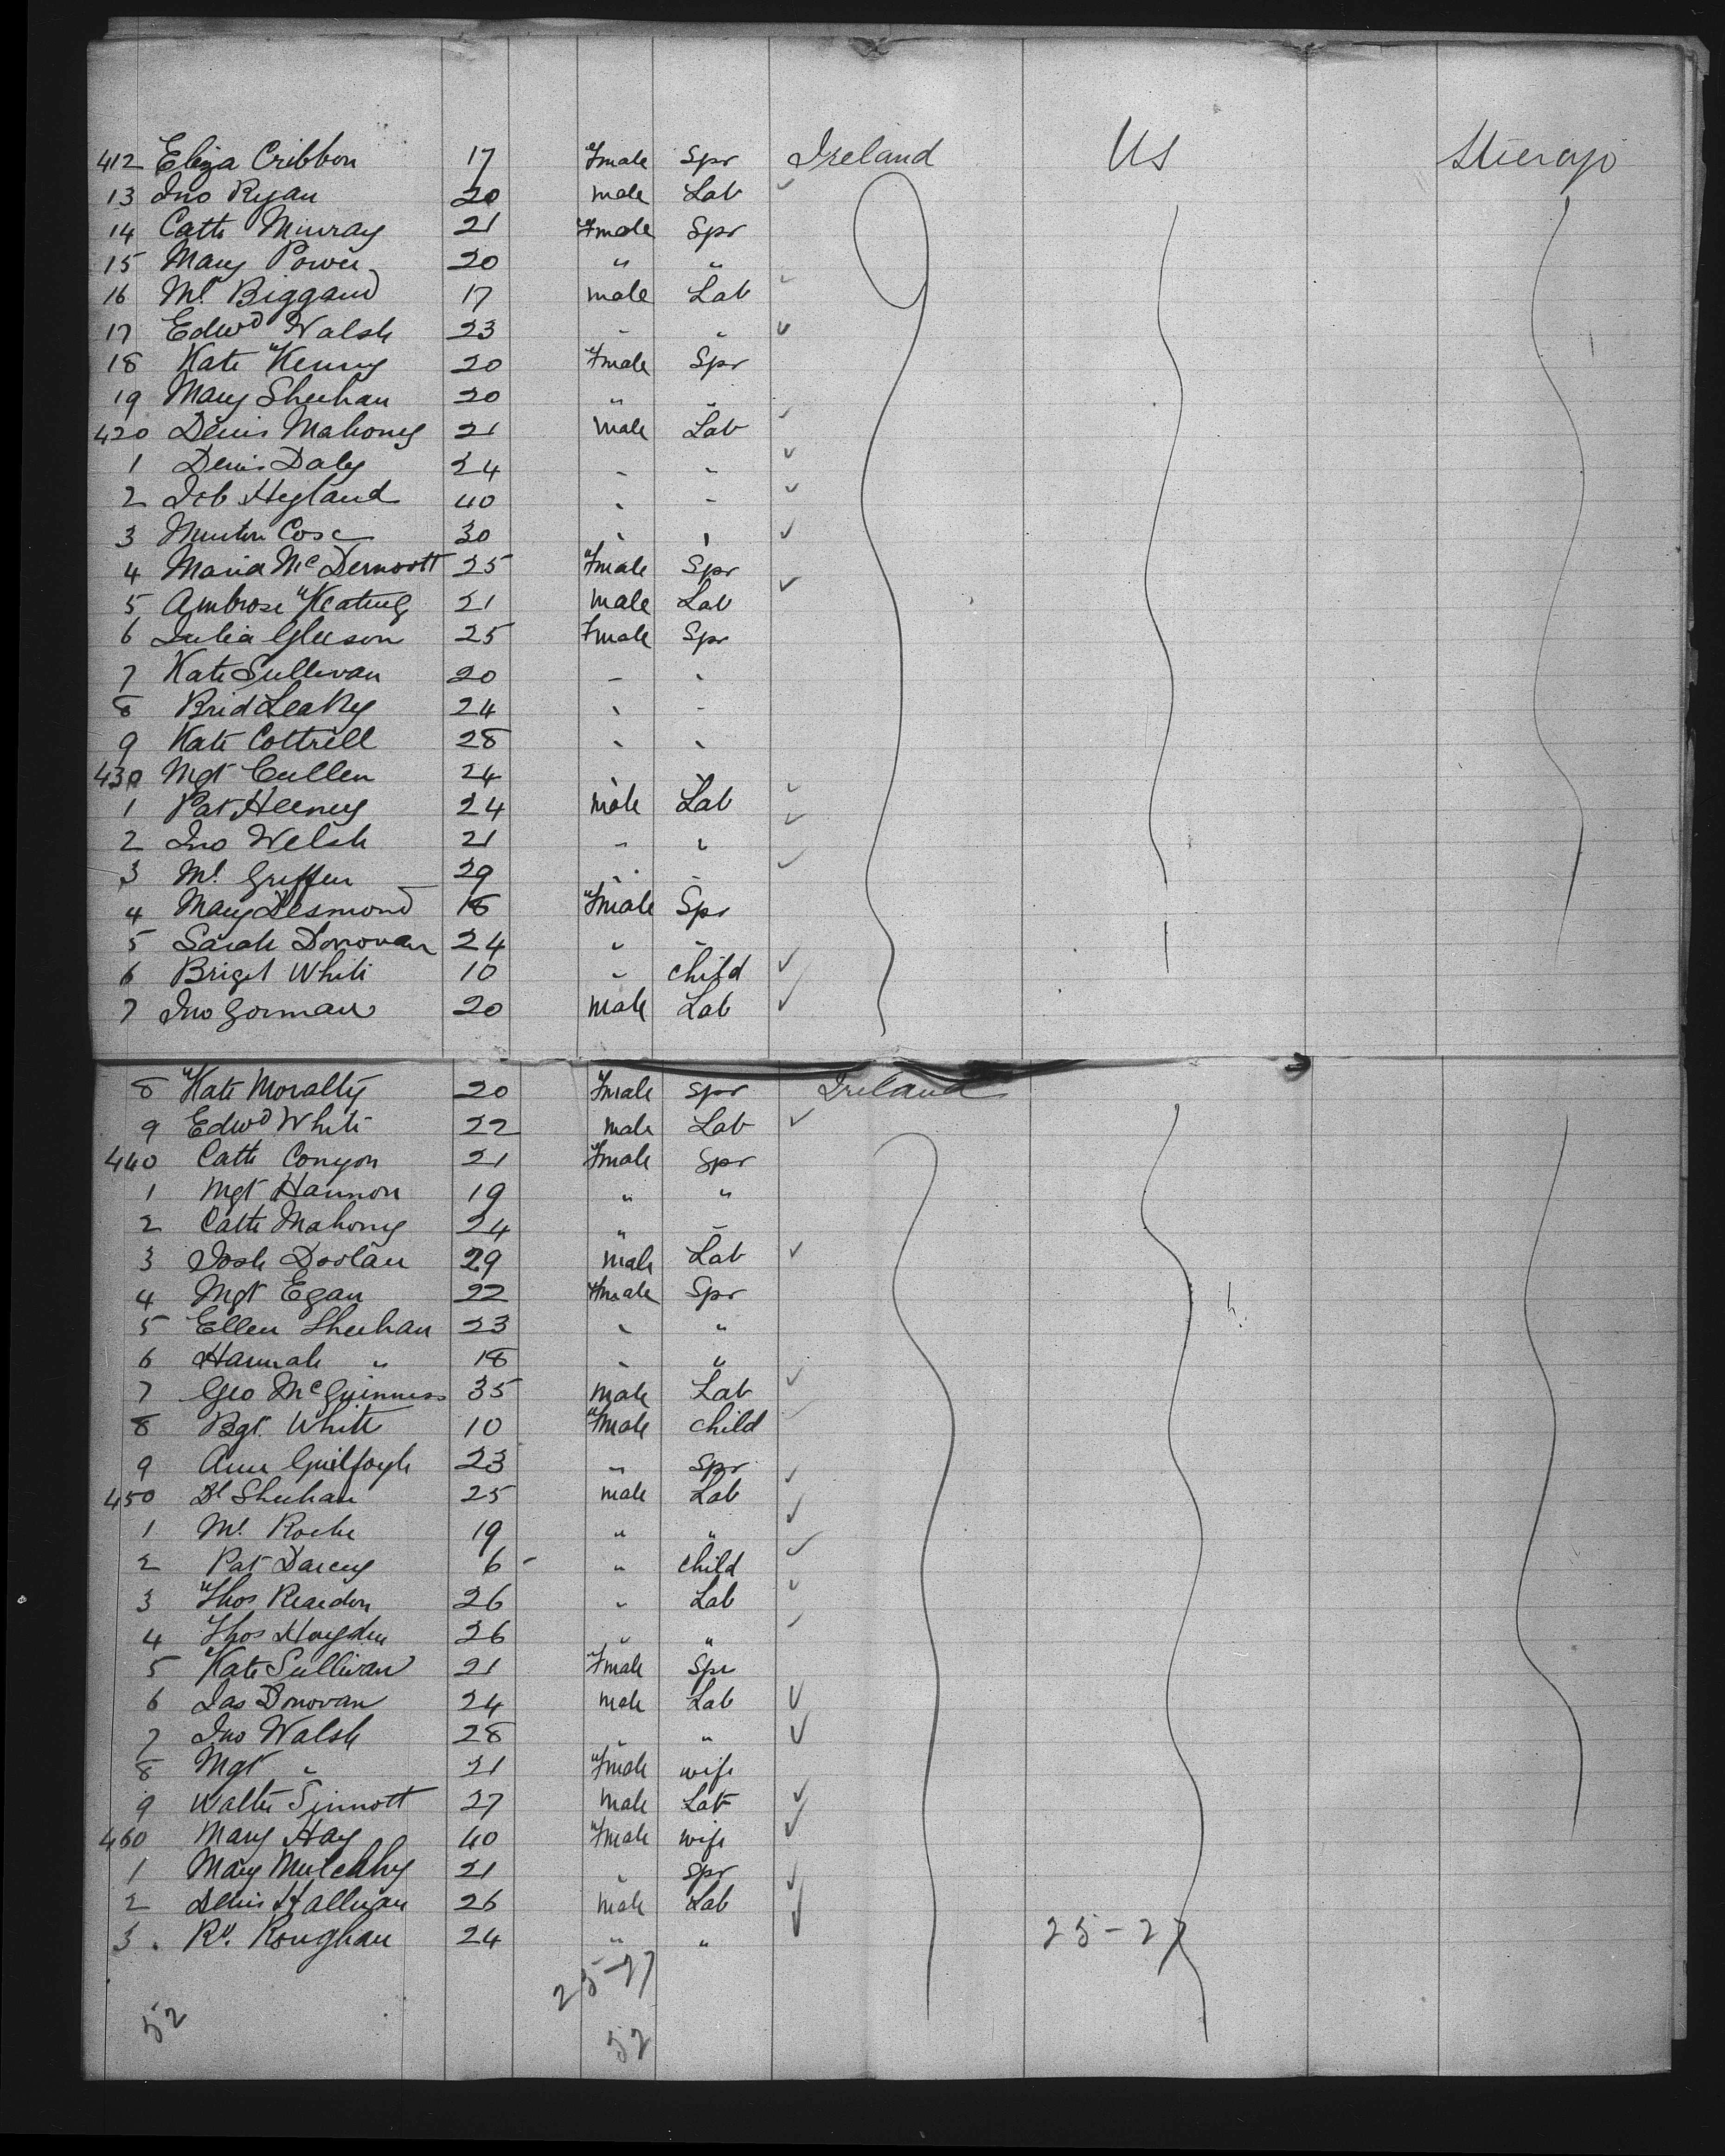 412 Eliza Cribbon 17 Fmale Spr Ireland US Steerage
13 Jno Ryan 20 male Lab ✓
14 Cathe Murray 21 Fmale Spr
15 Mary Power 20 " "
16 Ml Biggand 17 male Lab ✓
17 Edwd Walsh 23 " " ✓
18 Kate Kenny 20 Fmale Spr
19 Mary Sheehan 20 " "
420 Denis Mahony 21 male Lab ✓
1 Denis Daly 24 " " ✓
2 Job Hyland 40 " " ✓
3 30 " " ✓
4 Maria McDermott 25 Fmale Spr
5 Ambrose Keating 21 male Lab ✓
6 Julia Gleeson 25 Fmale Spr
7 Kate Sullivan 20 " "
8 Brid Leahy 24 " "
9 Kate Cottrell 28 " "
430 Mgt Cullen 24 " "
1 Pat Heeney 24 male Lab ✓
2 Jno Welsh 21 " " ✓
3 Ml Griffen 29 " " ✓
4 Mary Desmond 18 Fmale Spr
5 Sarah Donovan 24 " "
6 Briget White 10 " child ✓
7 Jno Gorman 20 male Lab ✓
8 Kate Moralty 20 Fmale Spr Ireland
9 Edwd White 22 male Lab ✓
440 Cathe Conyon 21 Fmale Spr
1 Mgt Hannon 19 " "
2 Cathe Mahony 24 " "
3 Josh Doolan 29 male Lab ✓
4 Mgt Egan 22 Fmale Spr
5 Ellen Sheehan 23 " "
6 Hannah " 18 " "
7 Geo McGuinness 35 male Lab ✓
8 Bgt. White 10 Fmale child ✓
9 Ann Guilfoyle 23 " Spr
450 Dl Sheehan 25 male Lab ✓
1 Ml Roche 19 " " ✓
2 Pat Darcey 6 - " child ✓
3 Thos Reardon 26 " Lab ✓
4 Thos Hayden 26 " " ✓
5 Kate Sullivan 21 Fmale Spr
6 Jas Donovan 24 male Lab ✓
7 Jno Walsh 28 " " ✓
8 Mgt " 21 Fmale wife
9 Walter Sinnott 27 male Lab ✓
460 Mary Hay 40 Fmale wife ✓
1 Mary Mulcahy 21 " Spr
2 Denis Hallinan 26 male Lab ✓
3 Rd. Roughan 24 " " ✓ 25-27
25-27
52
52